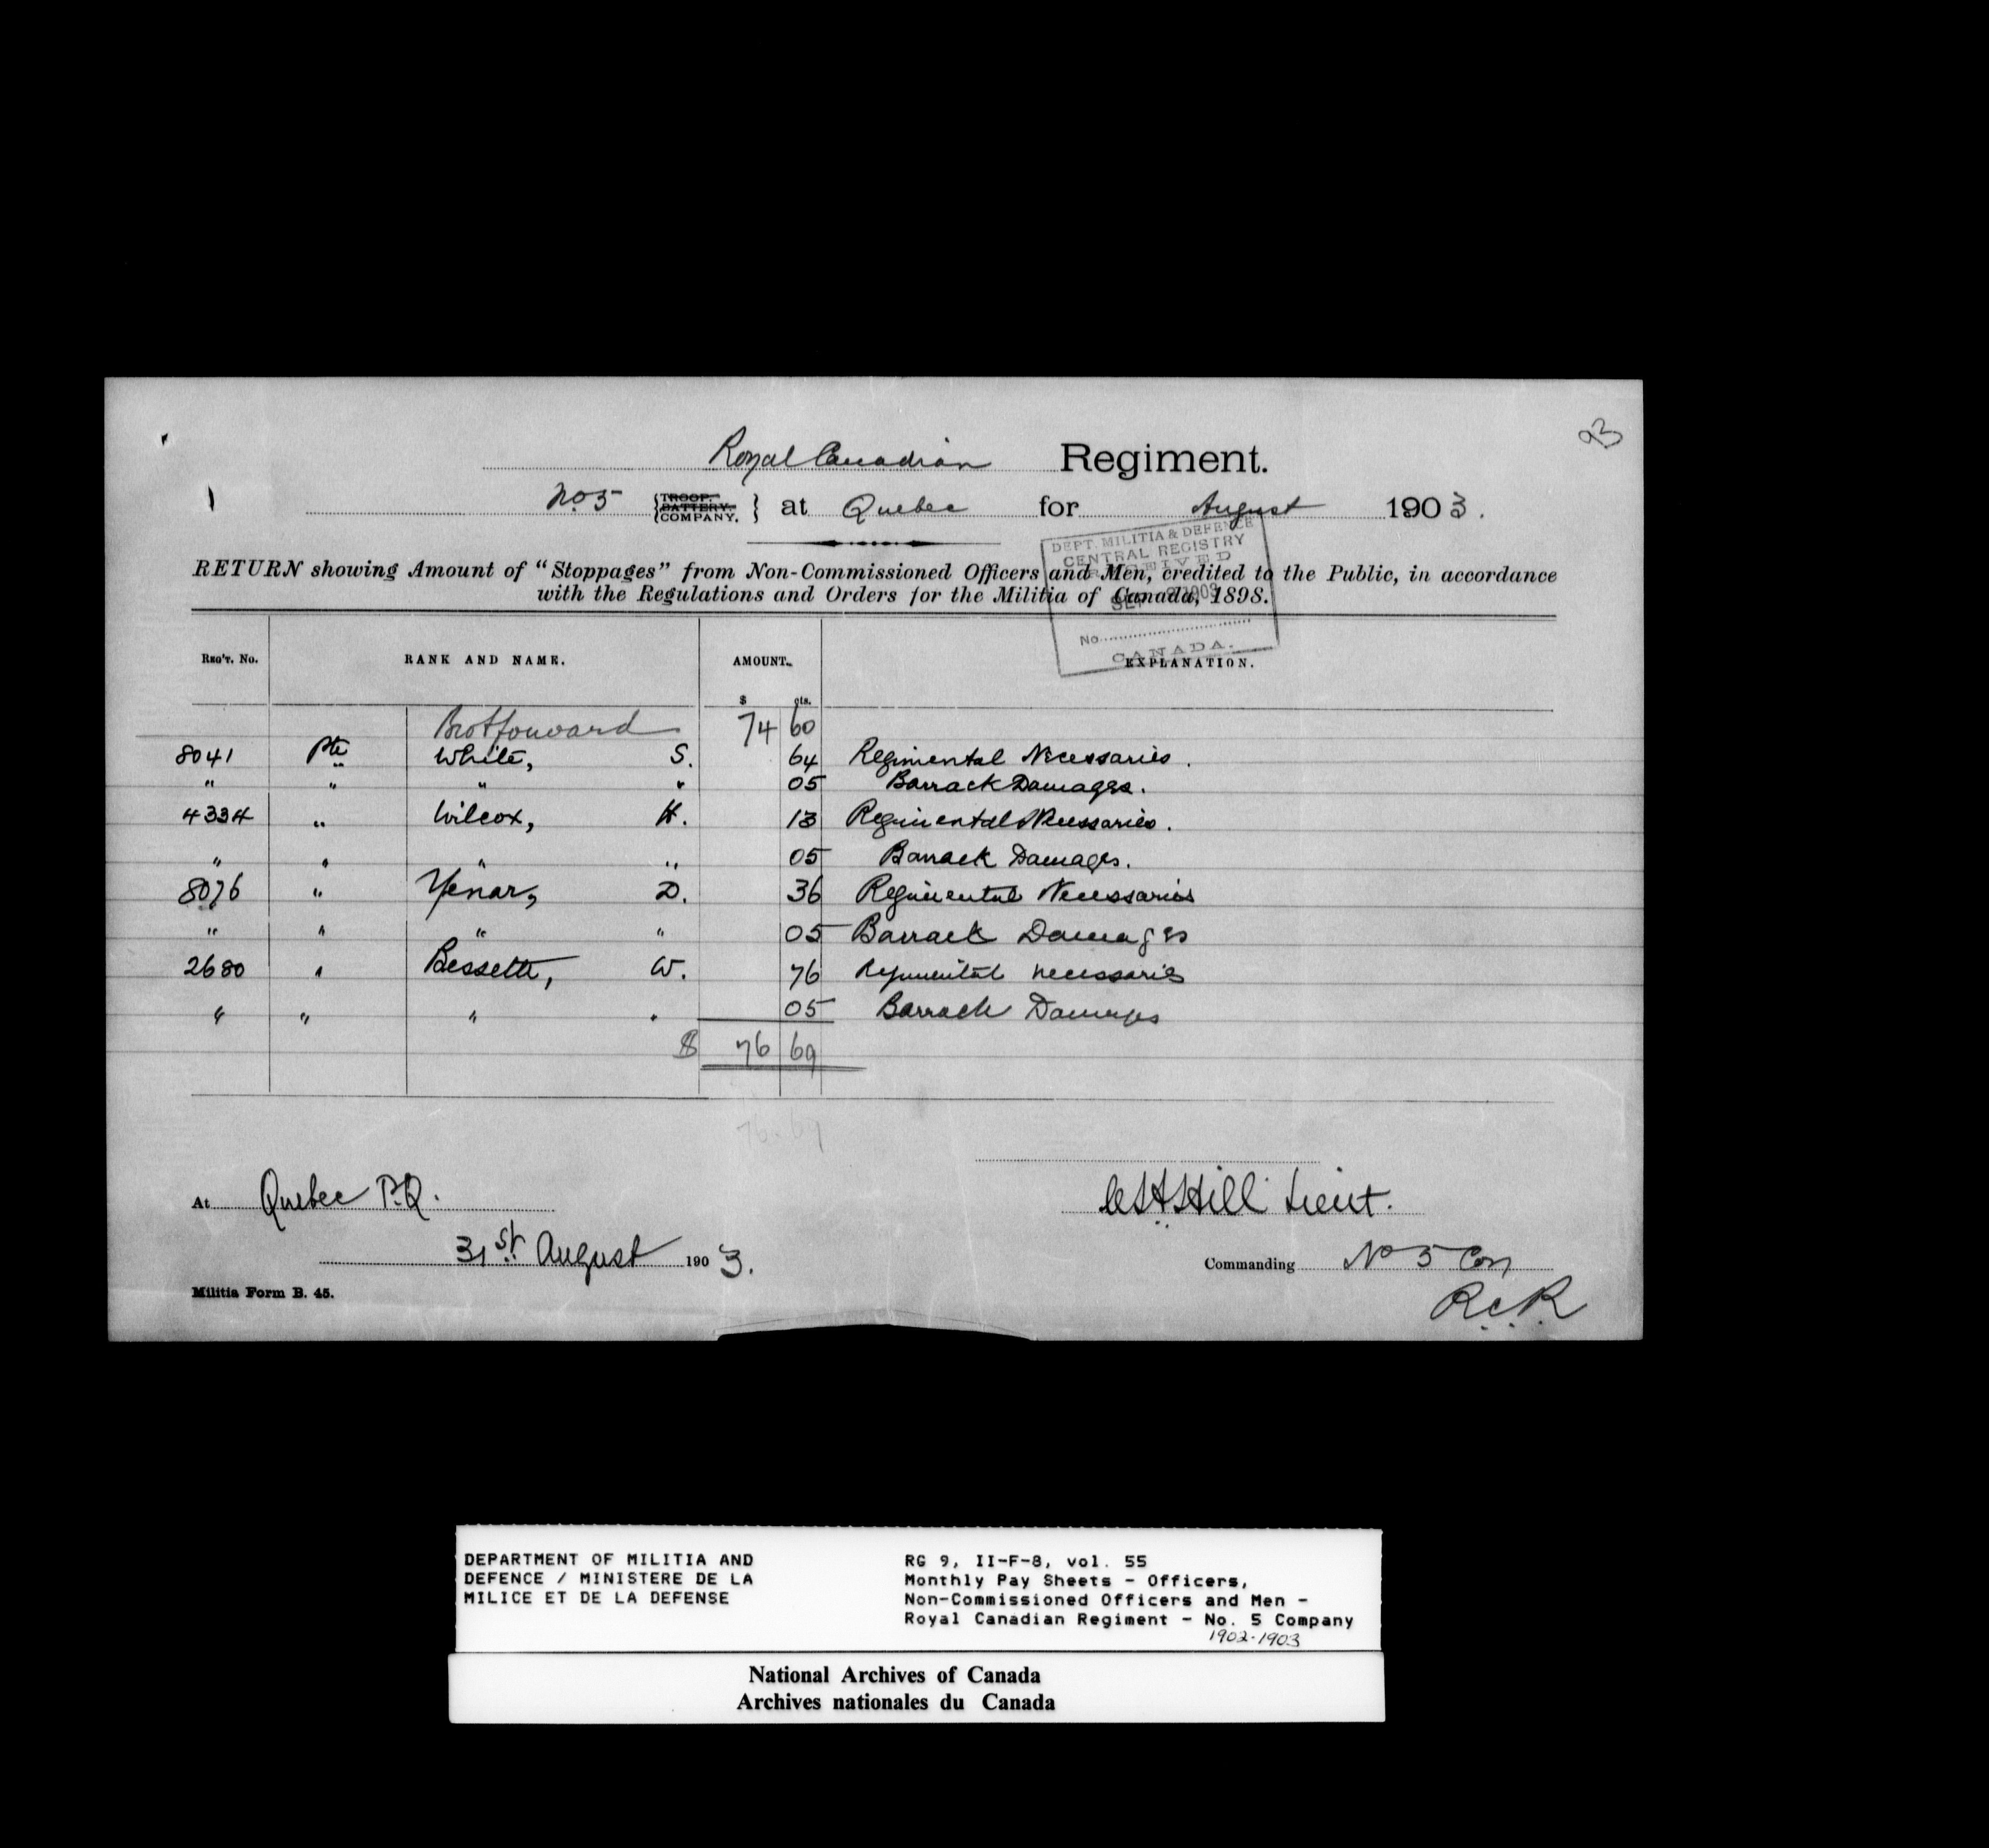 93
Royal Canadian Regiment.
No 5 {TROOP. BATTERY. COMPANY.} at Quebec for August 1903.
DEPT. MILITIA & DEFENCE
CENTRAL REGISTRY
RECEIVED
SEP 2 1903
No
CANADA.
RETURN showing Amount of "Stoppages" from Non-Commissioned Officers and Men, credited to the Public, in accordance
with the Regulations and Orders for the Militia of Canada, 1898.
REG'T. No. RANK AND NAME. AMOUNT. EXPLANATION.
$ cts.
Brot forward 74 60
8041 Pte White, S. 64 Regimental Necessaries.
" " " " 05 Barrack Damages.
4334 " Wilcox, H. 13 Regimental Necessaries.
" " " " 05 Barrack Damages.
8076 " Yenar, D. 36 Regimental Necessaries
" " " " 05 Barrack Damages
2680 " Bessette, W. 76 Regimental necessaries
" " " " 05 Barrack Damages
$ 76 69
76.69
At Quebec P.Q.
31st August 1903.
Militia Form B. 45.
Lieut.
Commanding No 5 Coy
R.C.R
DEPARTMENT OF MILITIA AND
DEFENCE / MINISTERE DE LA
MILICE ET DE LA DEFENSE
RG 9, II-F-8, vol. 55
Monthly Pay Sheets - Officers,
Non-Commissioned Officers and Men -
Royal Canadian Regiment - No. 5 Company
1902-1903
National Archives of Canada
Archives nationales du Canada